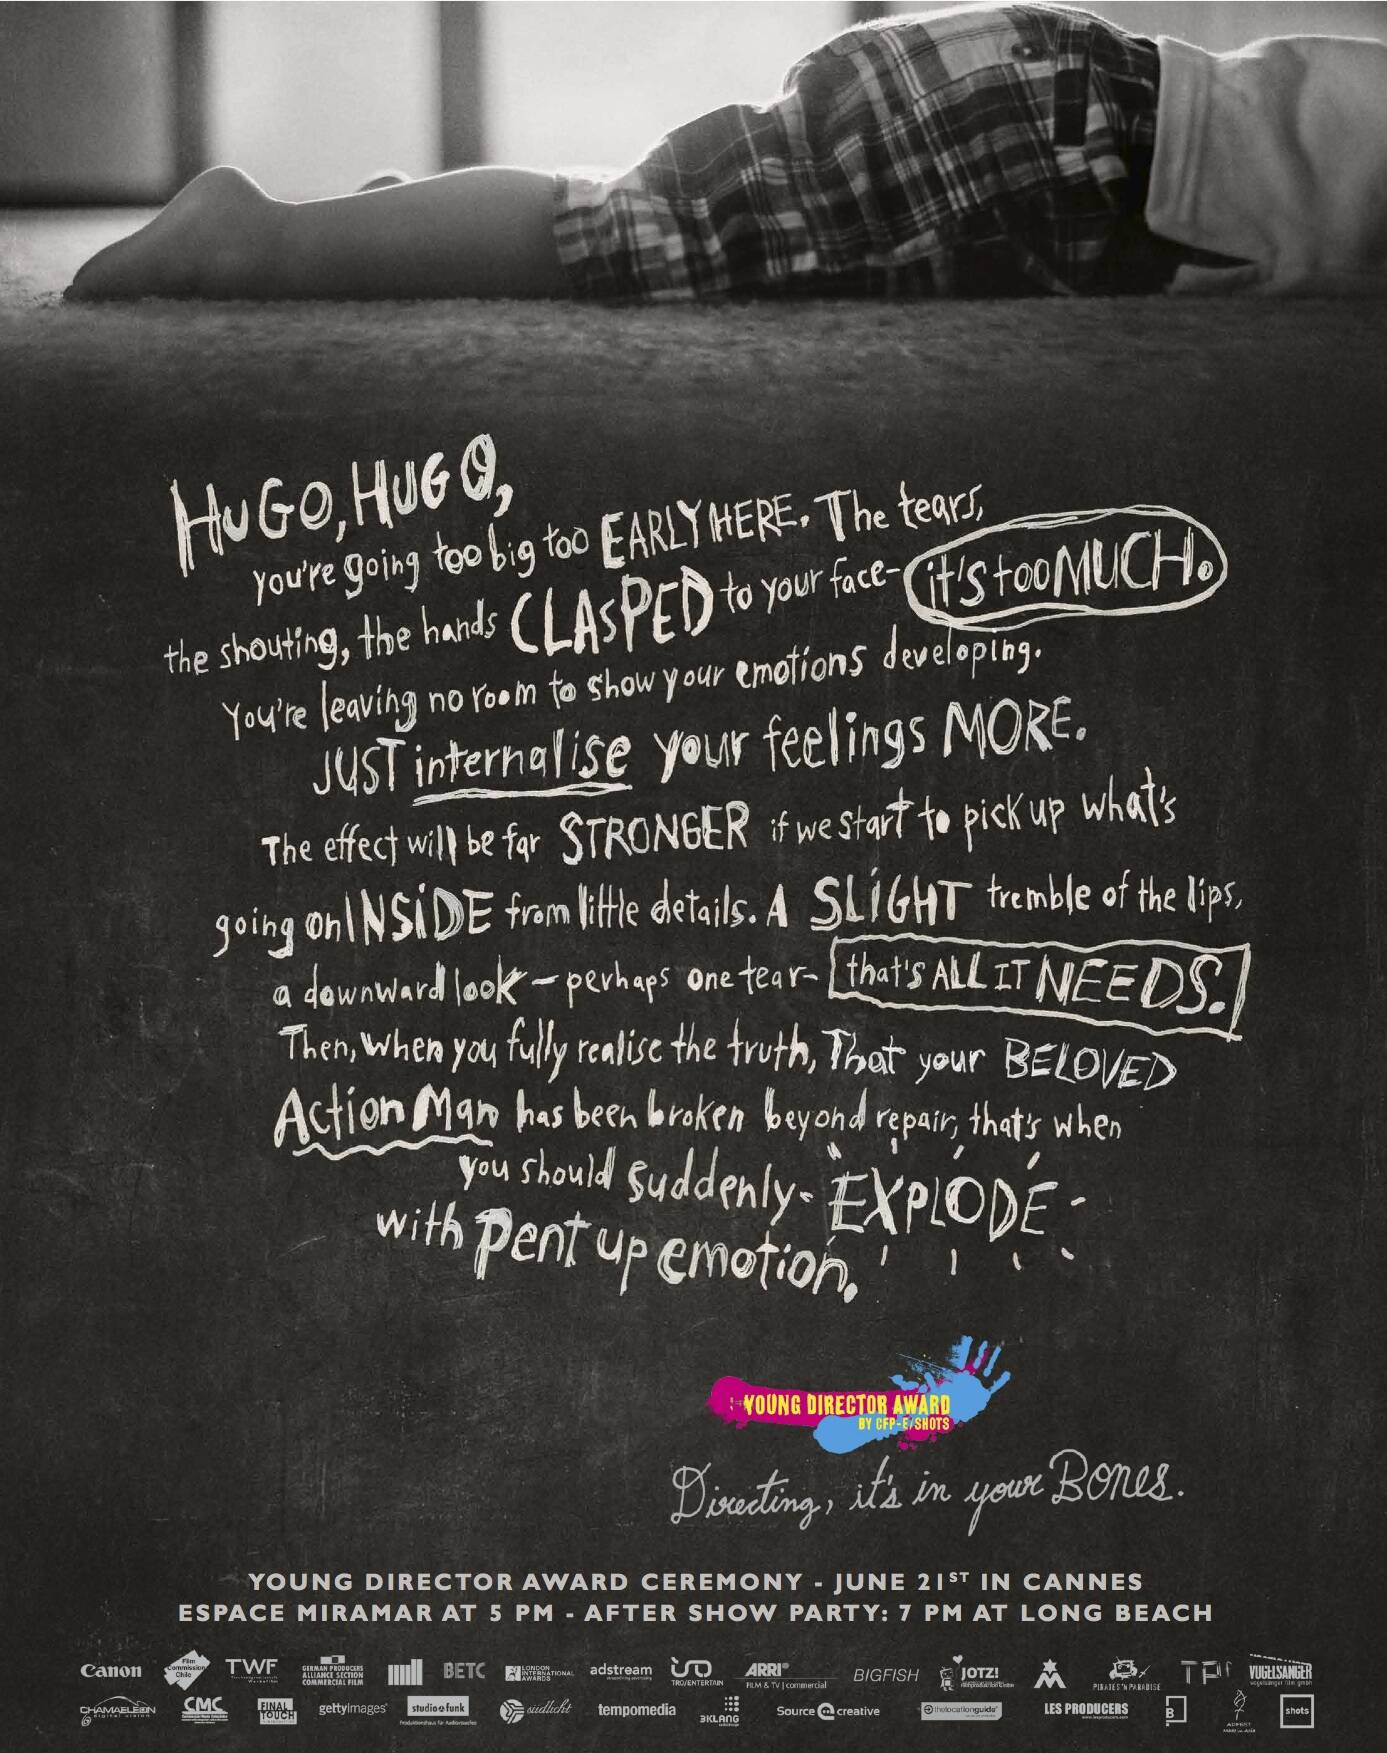 HUGO, HUGO,
you're going too big too EARLY HERE. The tears,
the shouting, the hands CLASPED to your face- it's too MUCH.
You're leaving no room to show your emotions developing.
JUST internalise your feelings MORE.
The effect will be far STRONGER if we start to pick up what's
going on INSiDE from little details. A SLiGHT tremble of the lips,
a downward look - perhaps one tear- that's ALL IT NEEDS.
Then, when you fully realise the truth, That your BELOVED
Action Man has been broken beyond repair, that's when
you should suddenly- EXPLODE-
with pent up emotion.
YOUNG DIRECTOR AWARD
BY CFP-E/SHOTS
Directing, it's in your BONES.
YOUNG DIRECTOR AWARD CEREMONY - JUNE 21ST IN CANNES
ESPACE MIRAMAR AT 5 PM - AFTER SHOW PARTY: 7 PM AT LONG BEACH
Canon Film Commission Chile TWF GERMAN PRODUCERS ALLIANCE SECTION COMMERCIAL FILM BETC LONDON INTERNATIONAL AWARDS adstream TRO/ENTERTAIN ARRI® FILM & TV | commercial BIGFISH JOTZ! PIRATES'N PARADISE VOGELSÄNGER
CHAMAELEON digital vision CMC FINAL TOUCH gettyimages® studio funk südlicht tempomedia 3KLANG Source creative thelocationguide LES PRODUCERS B ADFEST shots